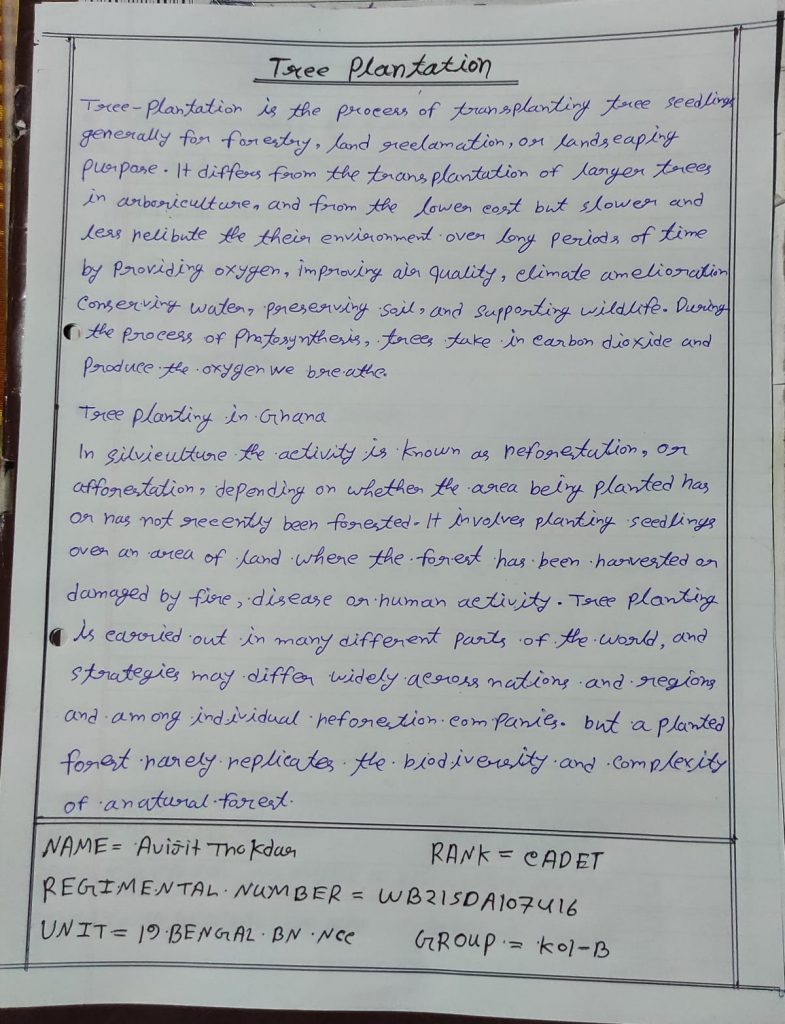 Tree Plantation
Tree-Plantation is the process of transplanting tree seedling
generally for forestry, land reelamation, or landseaping
purpose. It differs from the transplantation of larger trees
in arboriculture, and from the lower cost but slower and
less relibute the their environment over long periods of time
by providing oxygen, improving air quality, climate amelioration
Conserving water, preserving soil, and supporting wildlife. During
the process of Photosynthesis, trees take in carbon dioxide and
Produce the oxygen we breathe.
Tree planting in Ghana
In silviculture the activity is known as reforestution, or
afforestation, depending on whether the area being planted has
or has not recently been forested. It involves planting seedlings
over an area of land where the forest has been harvested or
damaged by fire, disease or human activity. Tree planting
is carried out in many different parts of the world, and
strategies may differ widely across nations and regions
and among individual reforestion companies. but a planted
forest rarely replicates the biodiversity and complexity
of a natural forest.
NAME = Avijit Thokdar RANK = CADET
REGIMENTAL NUMBER = WB21SDA107416
UNIT = 19 BENGAL BN NCC GROUP = Kol-B